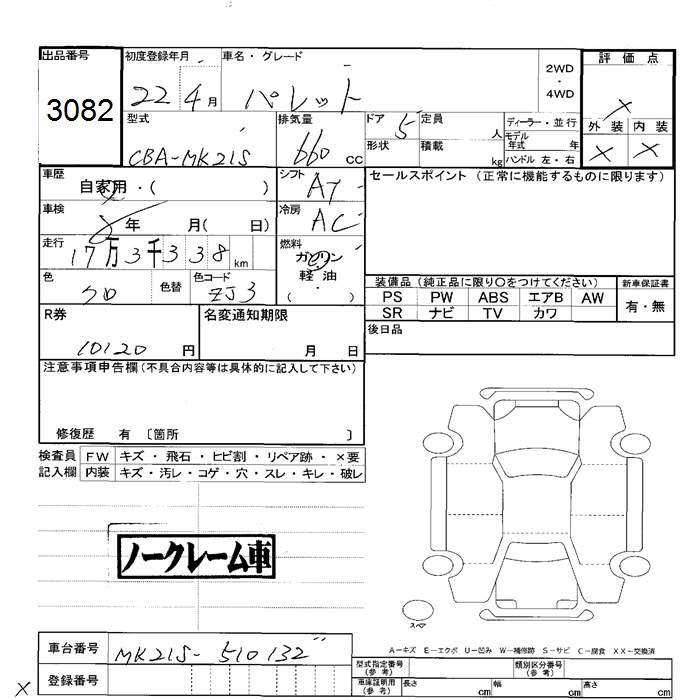 出品番号
3082
初度登録年月
22 4月
車名・グレード
パレット
2WD
・
4WD
評価点
×
外装 内装
× ×
型式
CBA-MK21S
排気量
660 cc
ドア 5
形状
定員 人
積載 kg
ディーラー・並行
モデル年式 年
ハンドル 左・右
車歴
自家用・( )
シフト AT
車検
年 月( 日)
冷房 AC
走行
17万3千338km
燃料
ガソリン
軽油
・
( )
色
クロ
色替
色コード
ZJ3
セールスポイント (正常に機能するものに限ります)
装備品(純正品に限り○をつけてください)
PS PW ABS エアB AW
SR ナビ TV カワ
新車保証書
有・無
後日品
R券
10120 円
名変通知期限
月 日
注意事項申告欄(不具合内容等は具体的に記入して下さい)
修復歴 有 〔箇所 〕
検査員記入欄
FW キズ・飛石・ヒビ割・リペア跡・×要
内装 キズ・汚レ・コゲ・穴・スレ・キレ・破レ
ノークレーム車
スペア
A-キズ E-エクボ U-凹み W-補修跡 S-サビ C-腐食 XX-交換済
車台番号 MK21S-510132
登録番号
×
型式指定番号(参考)
類別区分番号(参考)
車庫証明用(参考)
長さ cm 幅 cm 高さ cm